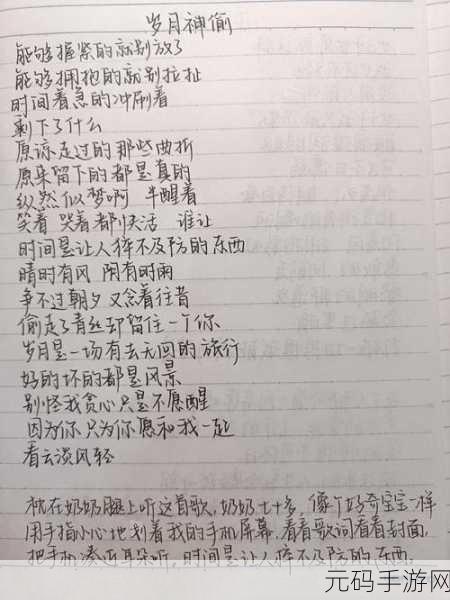 岁月神偷
能够握紧的就别放了
能够拥抱的就别拉扯
时间着急的冲刷着
剩下了什么
原谅走过的那些曲折
原来留下的都是真的
纵然似梦啊 半醒着
笑着 哭着都快活 谁让
时间是让人猝不及防的东西
晴时有风 阴有时雨
争不过朝夕 又念着往昔
偷走了青丝却留住一个你
岁月是一场有去无回的旅行
好的坏的都是风景
别怪我贪心只是不愿醒
因为你只为你愿和我一起
看云淡风轻
枕在奶奶腿上听这首歌,奶奶七十多,像个好奇宝宝一样
用手指小心地划着我的手机屏幕,看看歌词看看封面,
把手机凑近耳朵听,时间是让人猝不及防的东西,
元码手游网